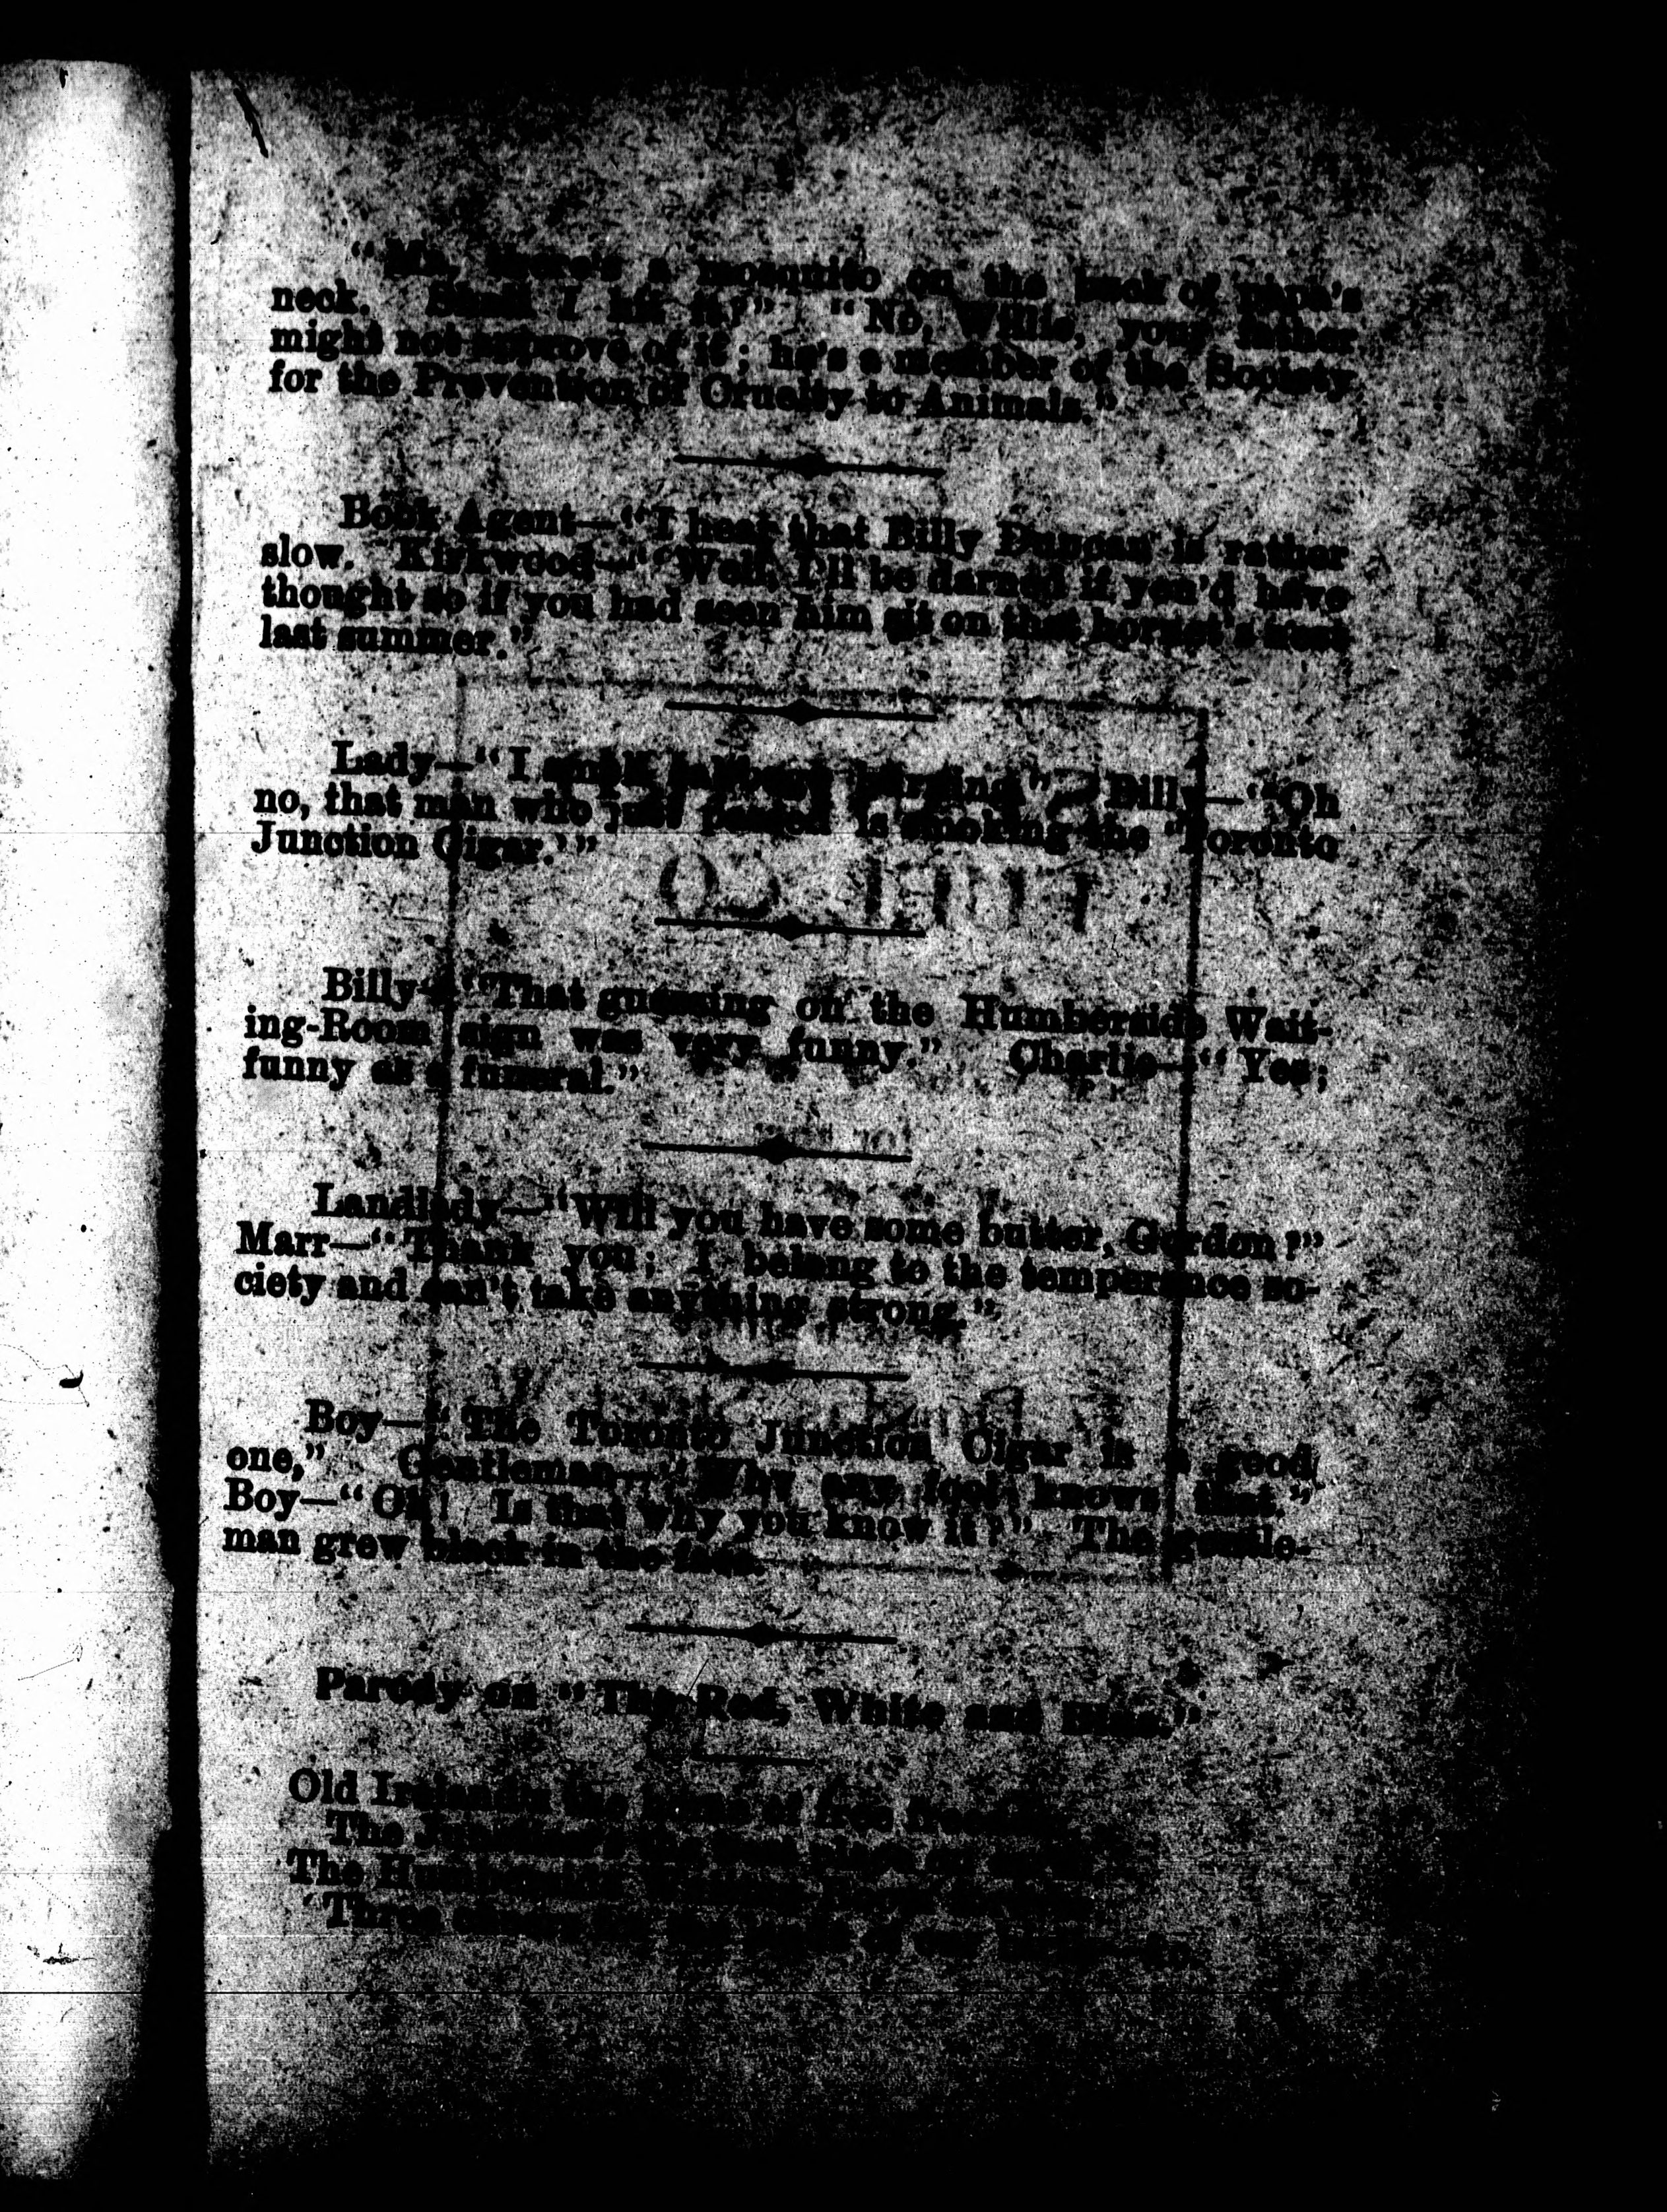 "Ma, there's a mosquito on the back of papa's
neck. Shall I hit it?" "No, Willie, your father
might not approve of it; he's a member of the Society
for the Prevention of Cruelty to Animals."
Book Agent—"I hear that Billy Duncan is rather
slow. Kirkwood—"Well, I'll be darned if you'd have
thought so if you had seen him sit on that hornet's nest
last summer."
Lady—"I smell burning." Billy—"Oh
no, that man who just passed is smoking the 'Toronto
Junction Cigar.'"
Billy—"That guessing on the Humberside Wait-
ing-Room sign was very funny." Charlie—"Yes;
funny as a funeral."
Landlady—"Will you have some butter, Gordon?"
Marr—"Thank you; I belong to the temperance so-
ciety and can't take anything strong."
Boy—"The Toronto Junction Cigar is a good
one," Gentleman—"Why any fool knows that."
Boy—"Oh! Is that why you know it?" The gentle-
man grew black in the face.
Parody on "The Red, White and Blue."
Old the home of
The the best place on
The Humberside
"Three cheers for the of our